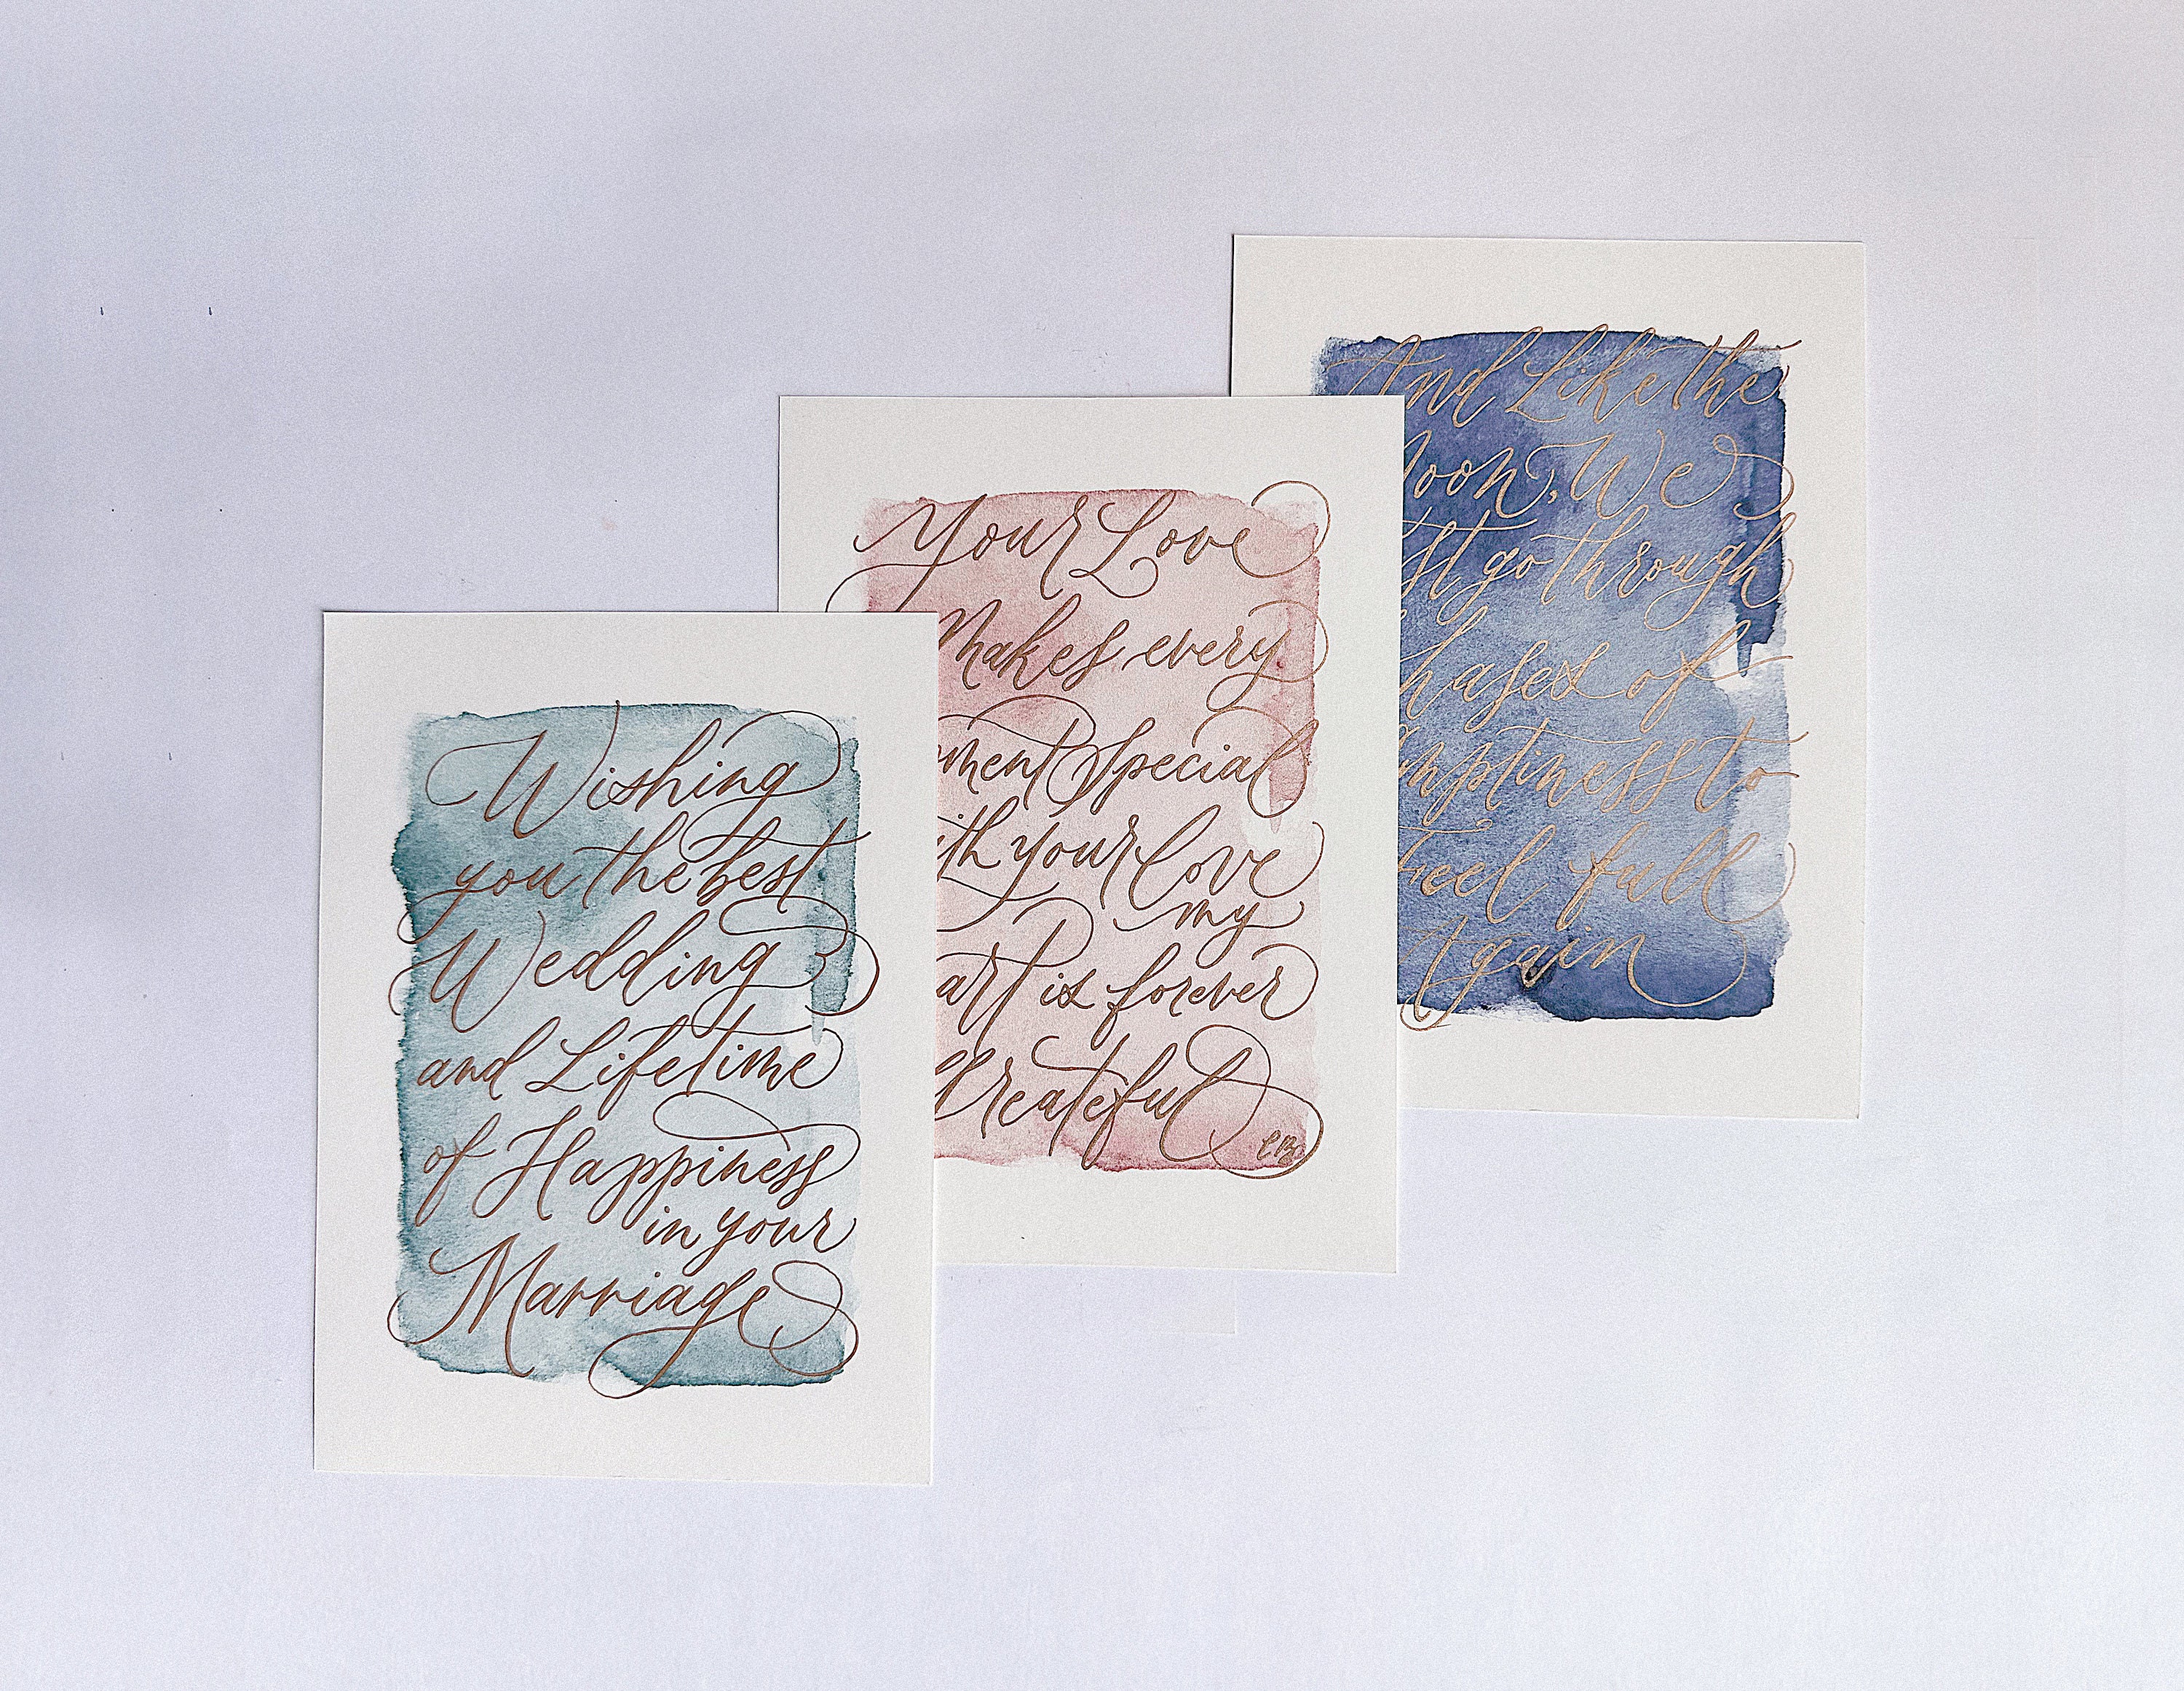 Wishing
you the best
Wedding
and Lifetime
of Happiness
in your
Marriage
Your Love
Makes every
ment Special
ith your love
my
art is forever
Greateful
CB
And Like the
oon, We
st go through
hases of
mptiness to
Feel full
Again